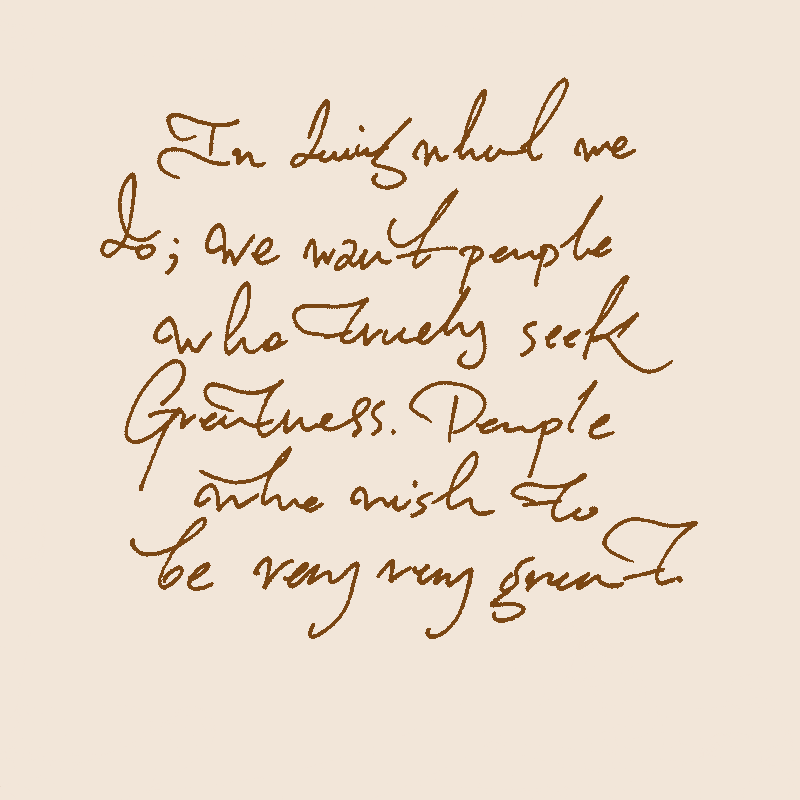 In doing what we
do; we want people
who truely seek
Greatness. People
who wish to
be very very great.